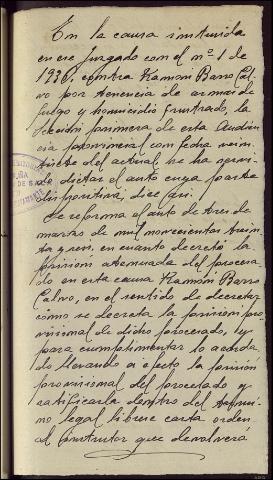 En la causa instruida
en ese Juzgado con el nº 1 de
1936, contra Ramón Barro Cal-
vo por tenencia de armas de
fuego y homicidio frustrado, la
Sección primera de esta Audien-
cia provincial con fecha vein-
tisiete del actual, se ha servi-
do dictar el auto cuya parte
dispositiva, dice así:
Se reforma el auto de tres de
marzo de mil novecientos trein-
ta y seis, en cuanto decretó la
prisión atenuada del procesa-
do en esta causa Ramón Barro
Calvo, en el sentido de decretar
como se decreta la prisión pro-
visional de dicho procesado, y
para cumplimentar lo acorda-
do llevando a efecto la prisión
provisional del procesado y
ratificarla dentro del término
legal librese carta orden
al instructor que devolverá